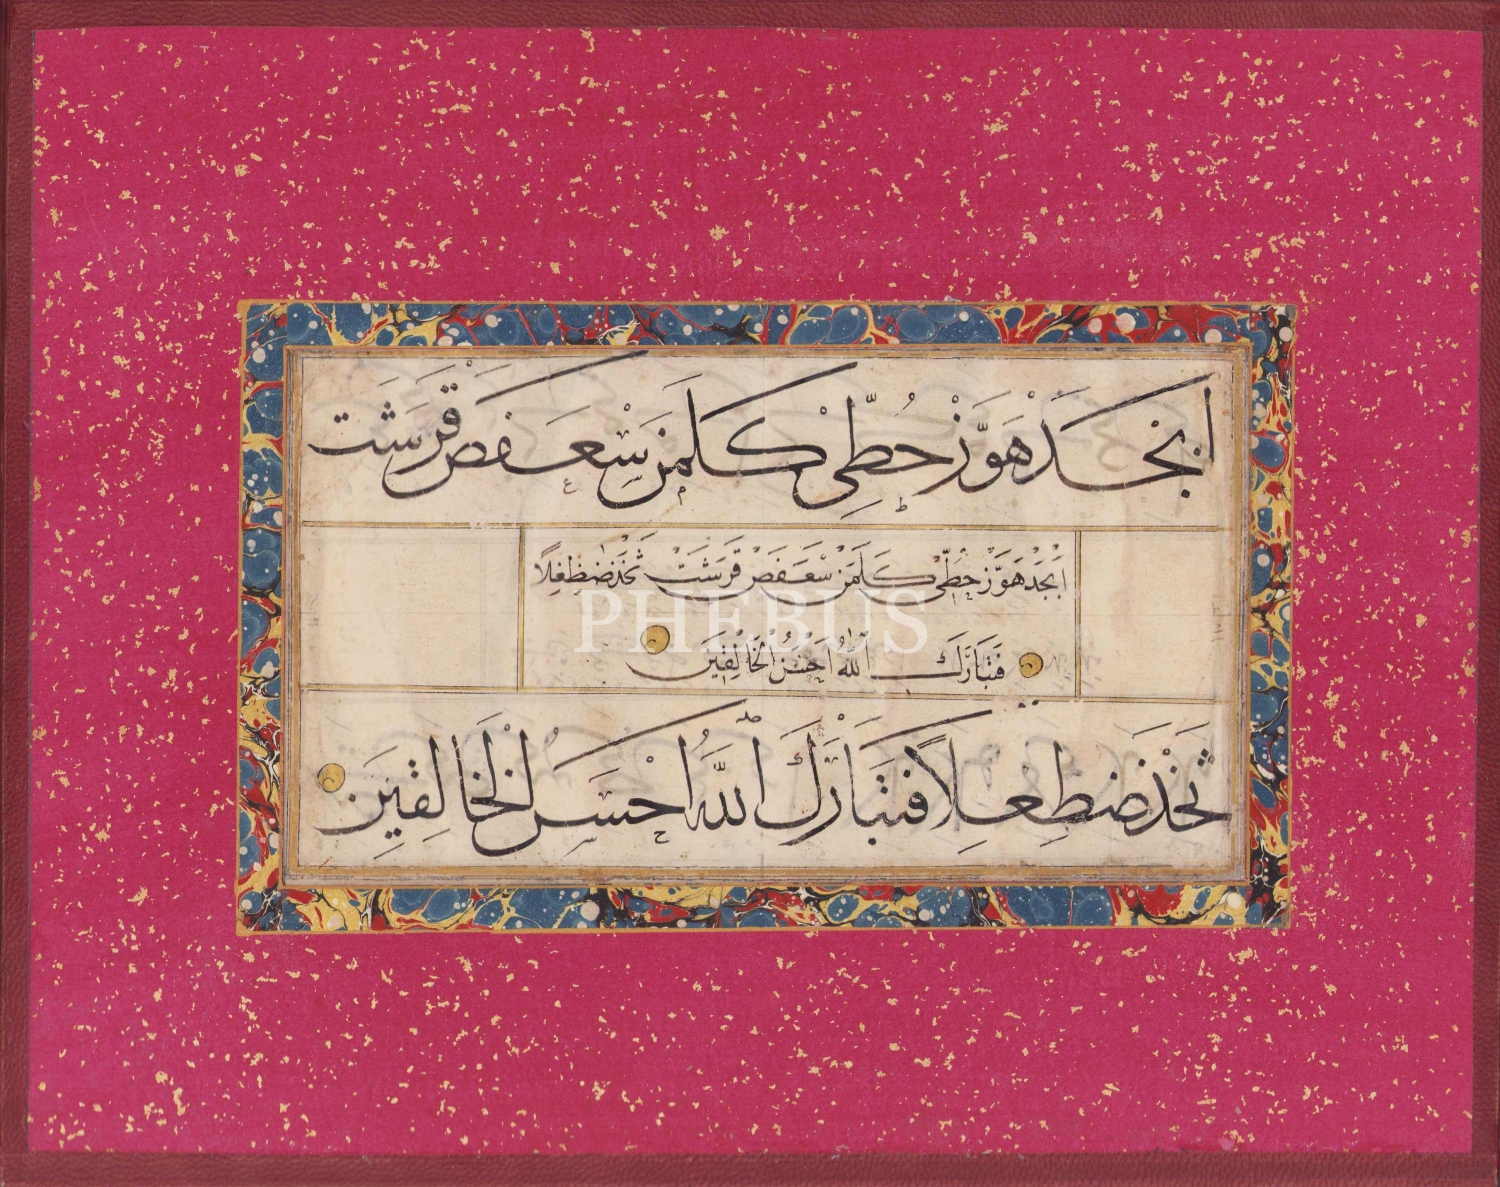 اَبْجَدْ هَوَّزْ حُطِّيْ كَلَمَنْ سَعَفَصْ قَرَشَتْ
اَبْجَدْ هَوَّزْ حُطِّيْ كَلَمَنْ سَعَفَصْ قَرَشَتْ ثَخَذْ ضَظِغِلاً
PHEBUS
فَتَبَارَكَ اللّٰهُ اَحْسَنُ الْخَالِقِينَ
ثَخَذْ ضَظِغِلاً فَتَبَارَكَ اللّٰهُ اَحْسَنُ الْخَالِقِينَ